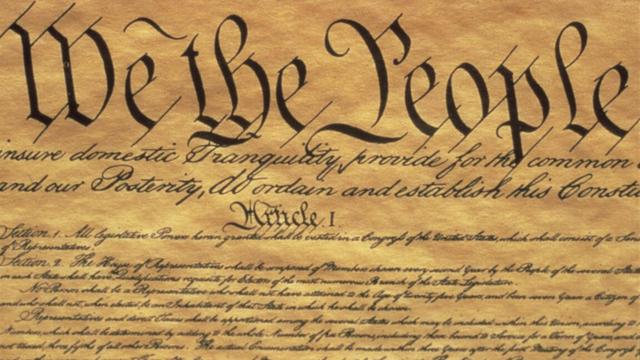 We the People
insure domestic Tranquility, provide for the common
and our Posterity, do ordain and establish this Const
Article. I.
Section. 1. All legislative Powers herein granted shall be vested in a Congress of the United States, which shall consist of a Sen
of Representatives.
Section. 2. The House of Representatives shall be composed of Members chosen every second Year by the People of the several States
in each State shall have Qualifications requisite for Electors of the most numerous Branch of the State Legislature.
No Person shall be a Representative who shall not have attained to the Age of twenty five Years, and been seven Years a Citizen of
and who shall not, when elected, be an Inhabitant of that State in which he shall be chosen.
Representatives and direct Taxes shall be apportioned among the several States which may be included within this Union, according to
Numbers, which shall be determined by adding to the whole Number of free Persons, including those bound to Service for a Term of Years, and
not taxed, three fifths of all other Persons. The actual Enumeration shall be made within three Years after the first Meeting of the Congress